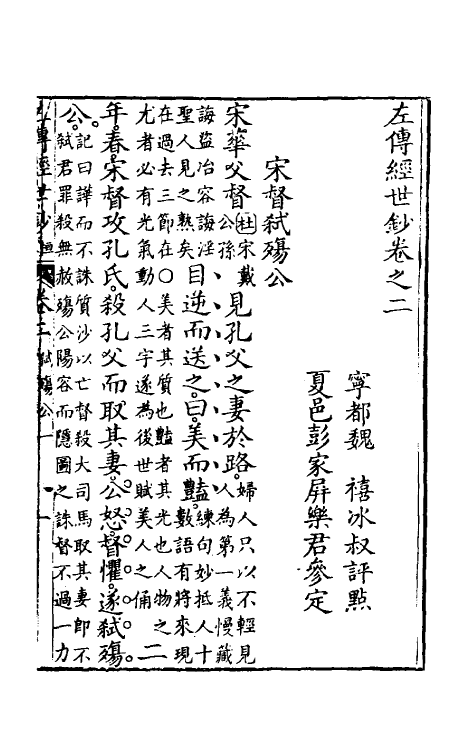 左傳經世鈔卷之二
寧都魏　禧冰叔評點
夏邑彭家屏樂君參定
宋督弒殤公
宋華父督杜宋戴公孫見孔父之妻於路婦人只以不輕見人為第一義慢藏
誨盜冶容誨淫聖人見之熟矣目逆而送之曰美而豔練句妙抵人十數語有將來現
在過去三節在○美者其質也豔者其光也人物之尤者必有光氣動人三字遂為後世賦美人之俑二
年春宋督攻孔氏殺孔父而取其妻公怒督懼遂弒殤
公記曰譁而不誅質沙以亡督殺大司馬取其妻即不弒君罪殺無赦殤公陽容而隱圖之誅督不過一力
左傳經世鈔　桓　卷二　弒殤公　一